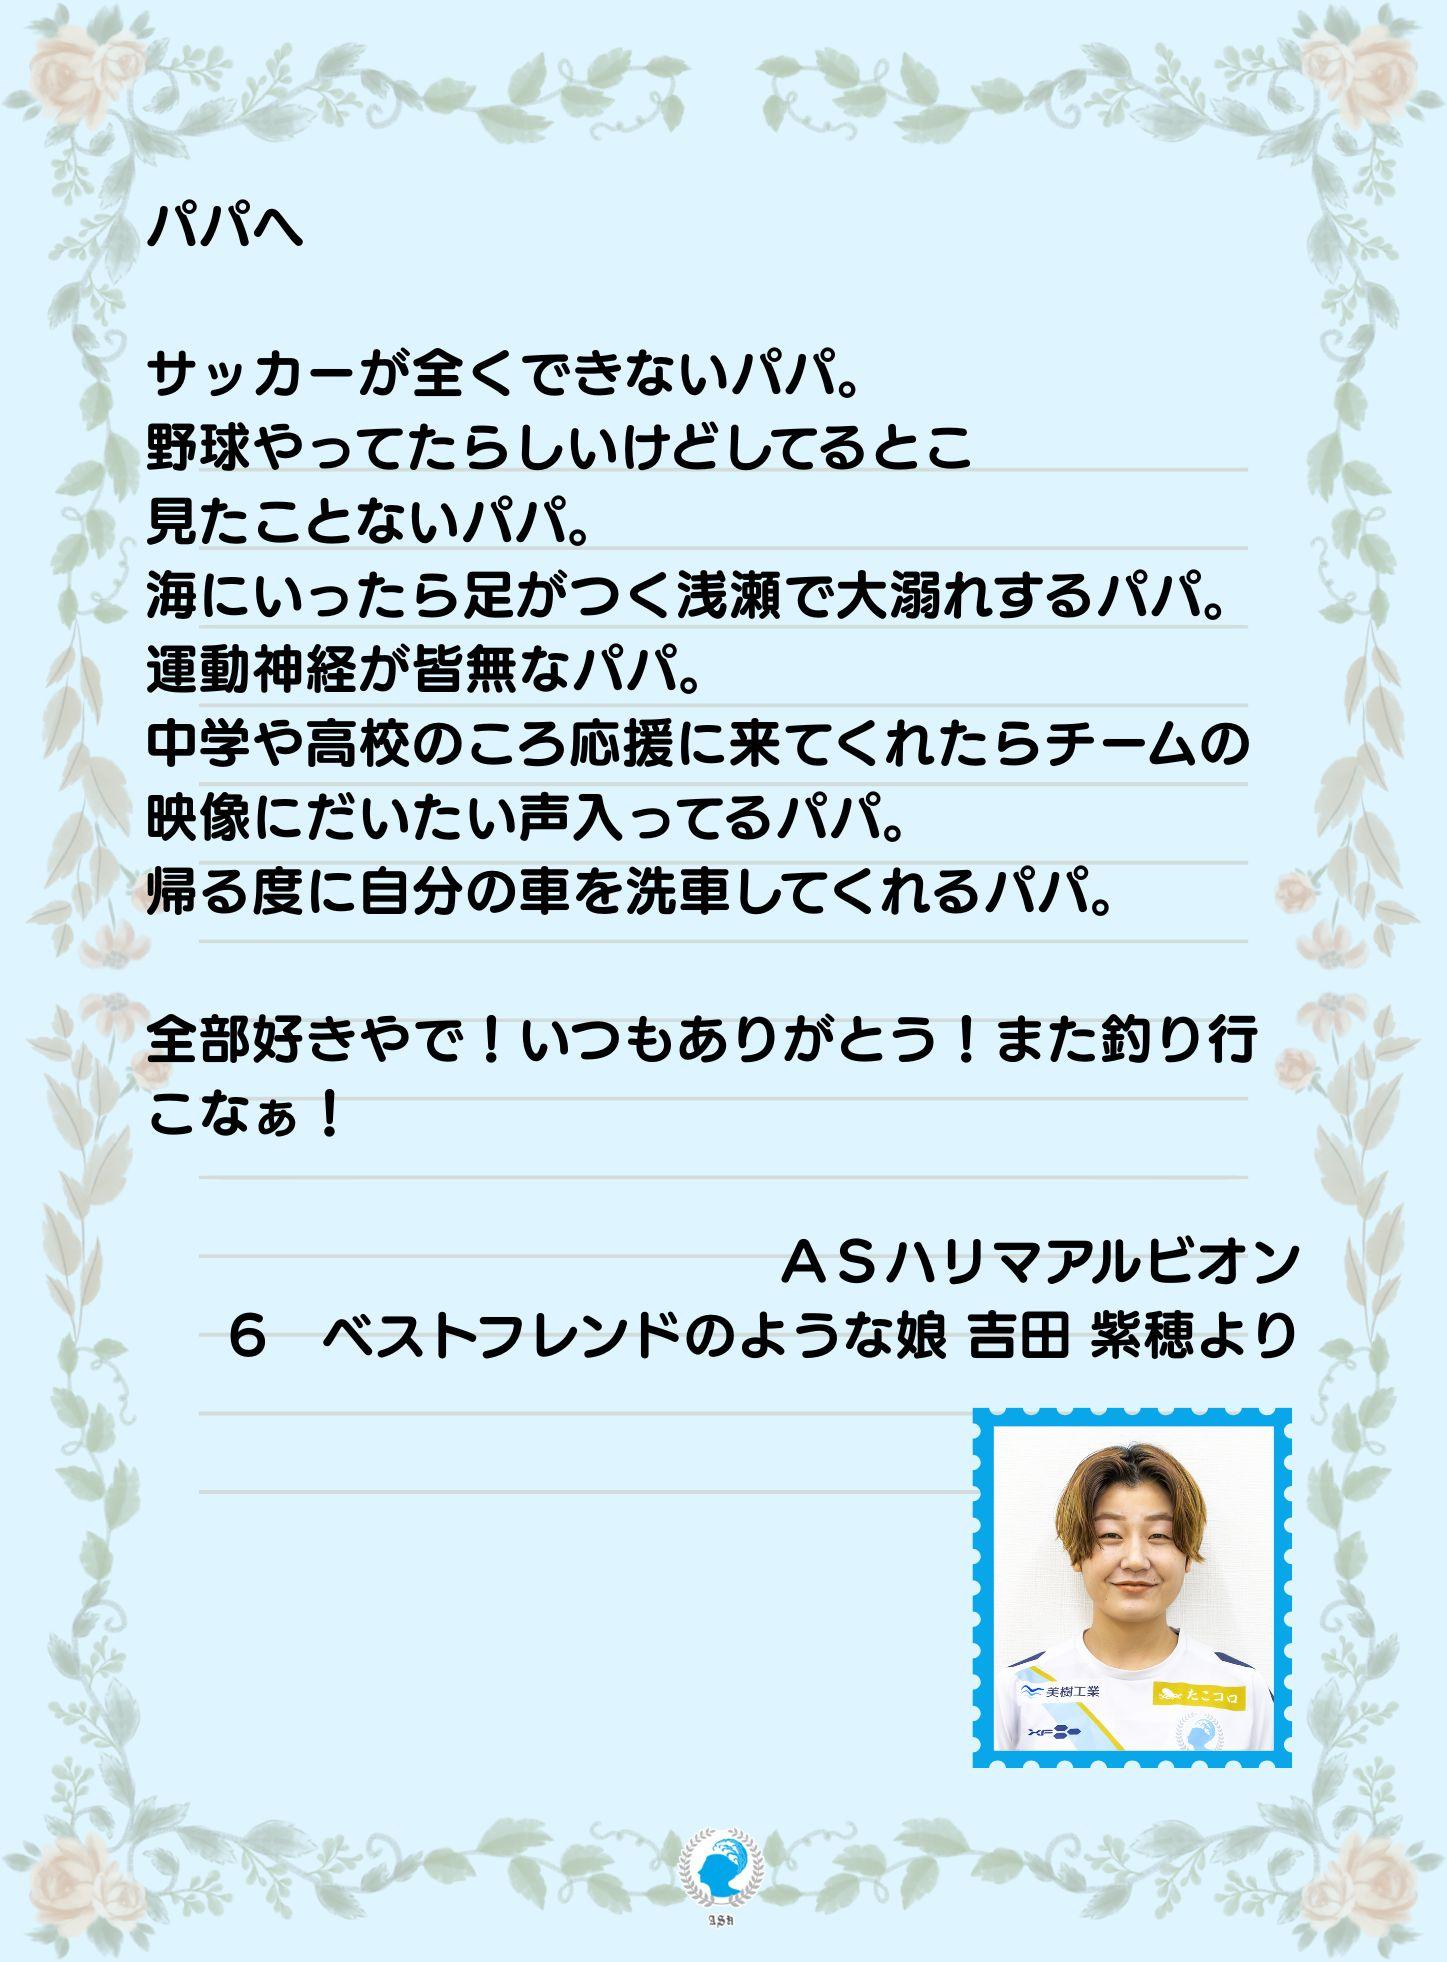 パパへ
サッカーが全くできないパパ。
野球やってたらしいけどしてるとこ
見たことないパパ。
海にいったら足がつく浅瀬で大溺れするパパ。
運動神経が皆無なパパ。
中学や高校のころ応援に来てくれたらチームの
映像にだいたい声入ってるパパ。
帰る度に自分の車を洗車してくれるパパ。
全部好きやで！いつもありがとう！また釣り行
こなぁ！
ＡＳハリマアルビオン
６　ベストフレンドのような娘 吉田 紫穂より
美樹工業
たこコロ
XF
ASH